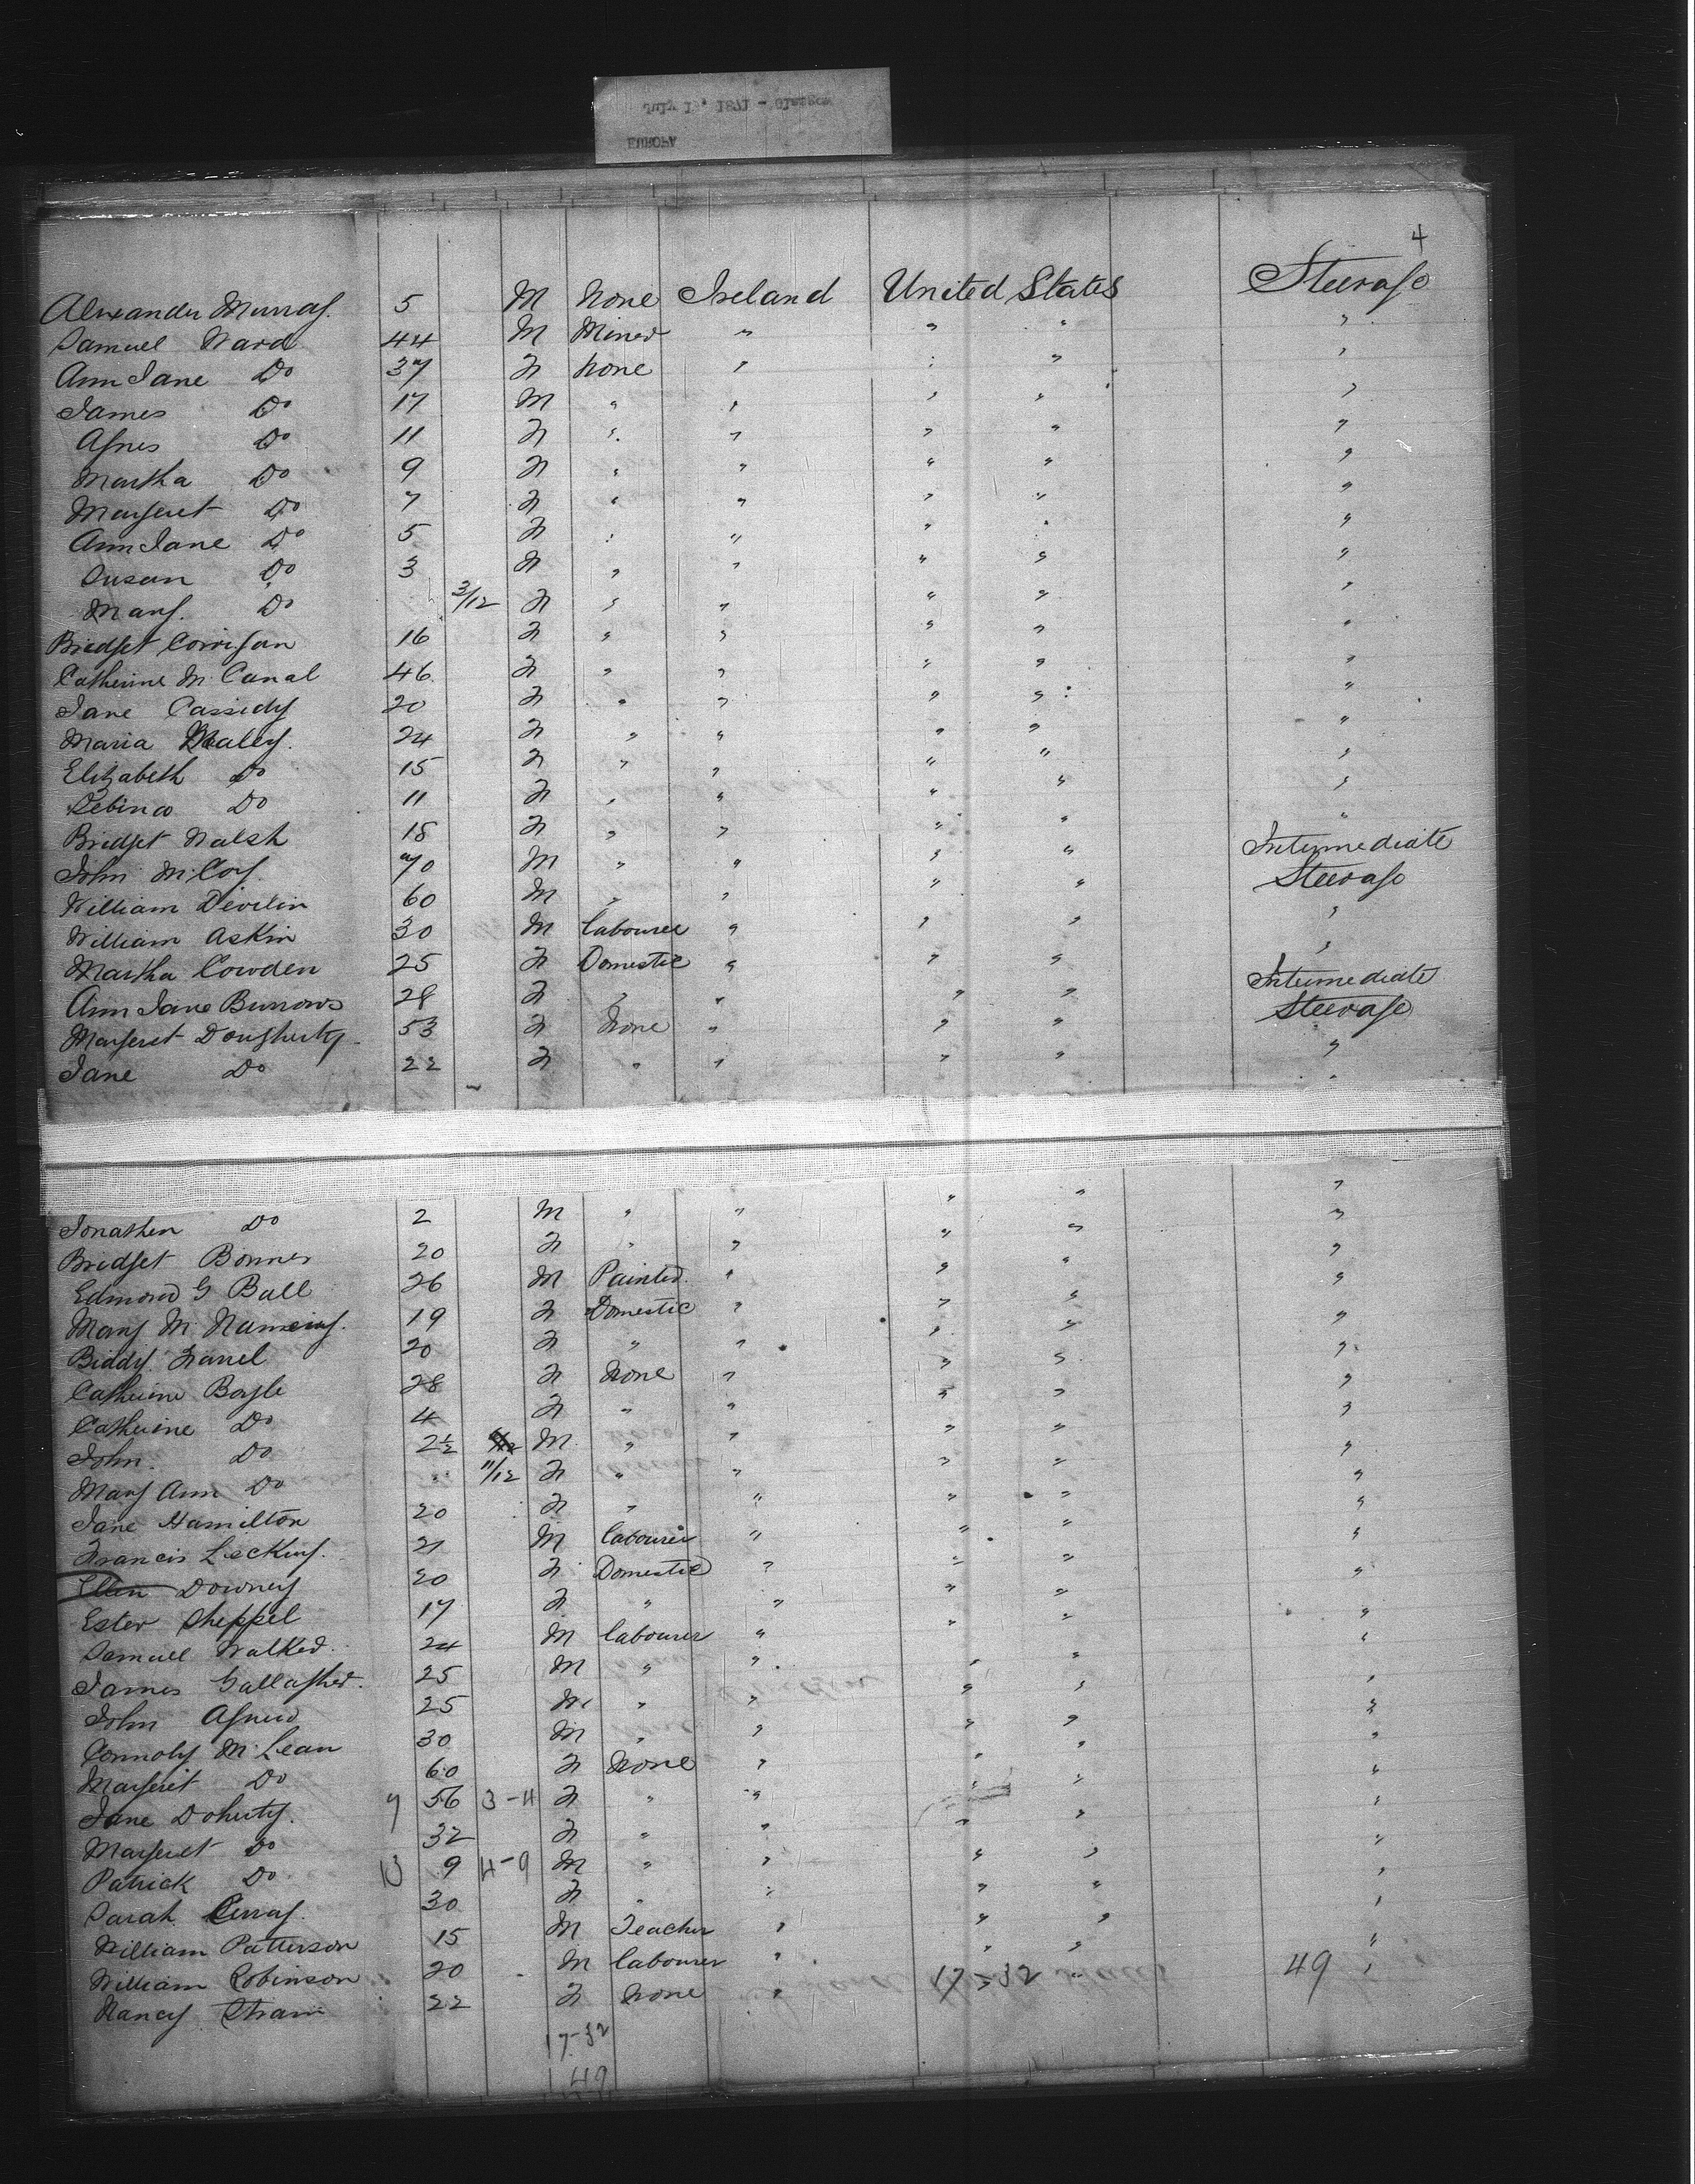 EUROPA
July 1, 1871 - Glasgow
4
Alexander Murray. 5 M None Ireland United States Steerage
Samuel Ward 44 M Miner " " " "
Ann Jane Do 37 F None " " " "
James Do 17 M " " " " "
Agnes Do 11 F " " " " "
Martha Do 9 F " " " " "
Margeret Do 7 F " " " " "
Ann Jane Do 5 F " " " " "
Susan Do 3 F " " " " "
Mary. Do 3/12 F " " " " "
Bridget Corrigan 16 F " " " " "
Catherine Mc Canal 46 F " " " " "
Jane Cassidy 20 F " " " " "
Maria Maley. 24 F " " " " "
Elizabeth Do 15 F " " " " "
Do 11 F " " " " "
Bridget Walsh 18 F " " " " "
John McCoy. 70 M " " " " Intermediate
William Devilin 60 M " " " " Steerage
William Askin 30 M Labourer " " " "
Martha Cowden 25 F Domestic " " " "
Ann Jane Burrows 28 F " " " " Intermediate
Margeret Dougherty 53 F None " " " Steerage
Jane Do 22 F " " " " "
" " "
Jonathen Do 2 M " " " " "
Bridget Bonner 20 F " " " " "
Edmond G Ball 26 M Painter " " " "
Mary Mc 19 F Domestic " " " "
Biddy 20 F " " " " "
Catherine Boyle 28 F None " " " "
Catherine Do 4 F " " " " "
John. Do 2½ M " " " " "
Mary Ann Do 11/12 F " " " " "
Jane Hamilton 20 F " " " " "
Francis Leckey. 21 M Labourer " " " "
Ellen Downey 20 F Domestic " " " "
Ester Sheppel 17 F " " " " "
Samuel Walker 24 M Labourer " " " "
James Gallagher. 25 M " " " " "
John Agnew 25 M " " " " "
Connoly McLean 30 M " " " " "
Margeret Do 60 F None " " " "
Jane Doherty. 7 56 3-4 F " " " " "
Margeret Do 32 F " " " " "
Patrick Do 13 9 4-9 M " " " " "
Sarah 30 F " " " " "
William Patterson 15 M Teacher " " " "
William Robinson 20 M Labourer " " " "
Nancy 22 F None " 17-32 " 49 "
17-32
49